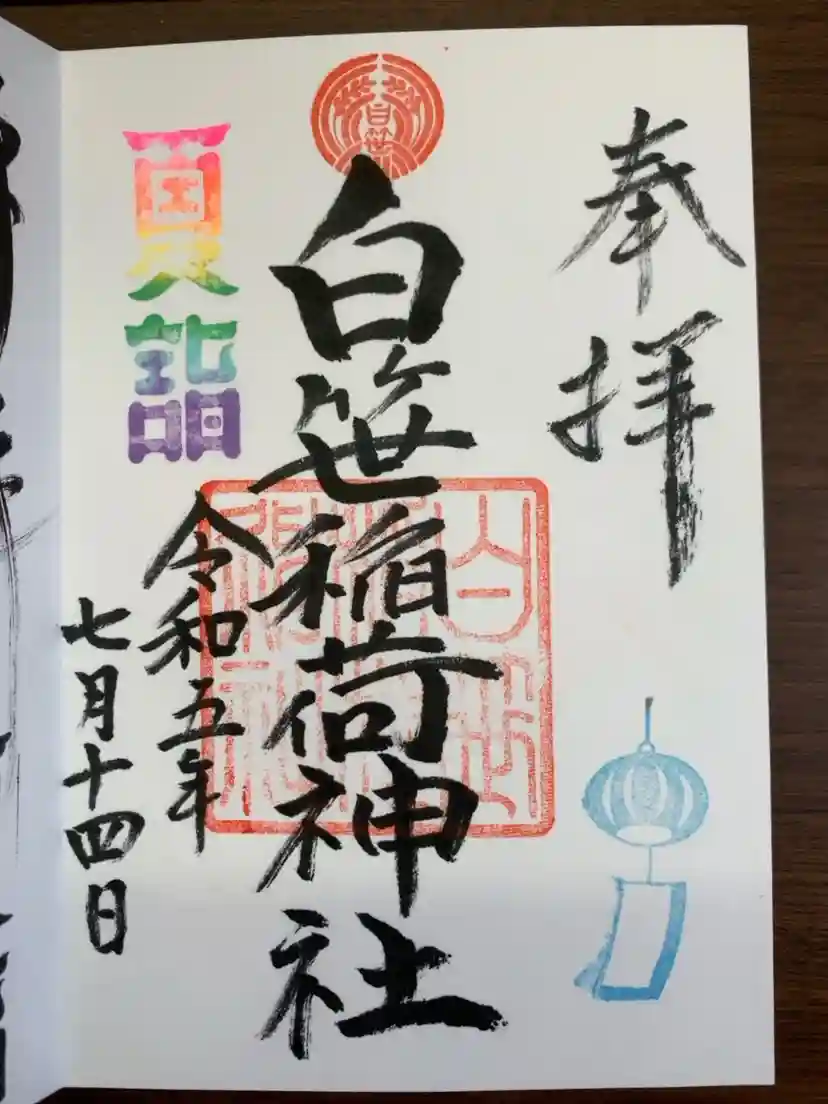 奉拝
白笹
白笹稲荷神社
夏詣
令和五年
七月十四日